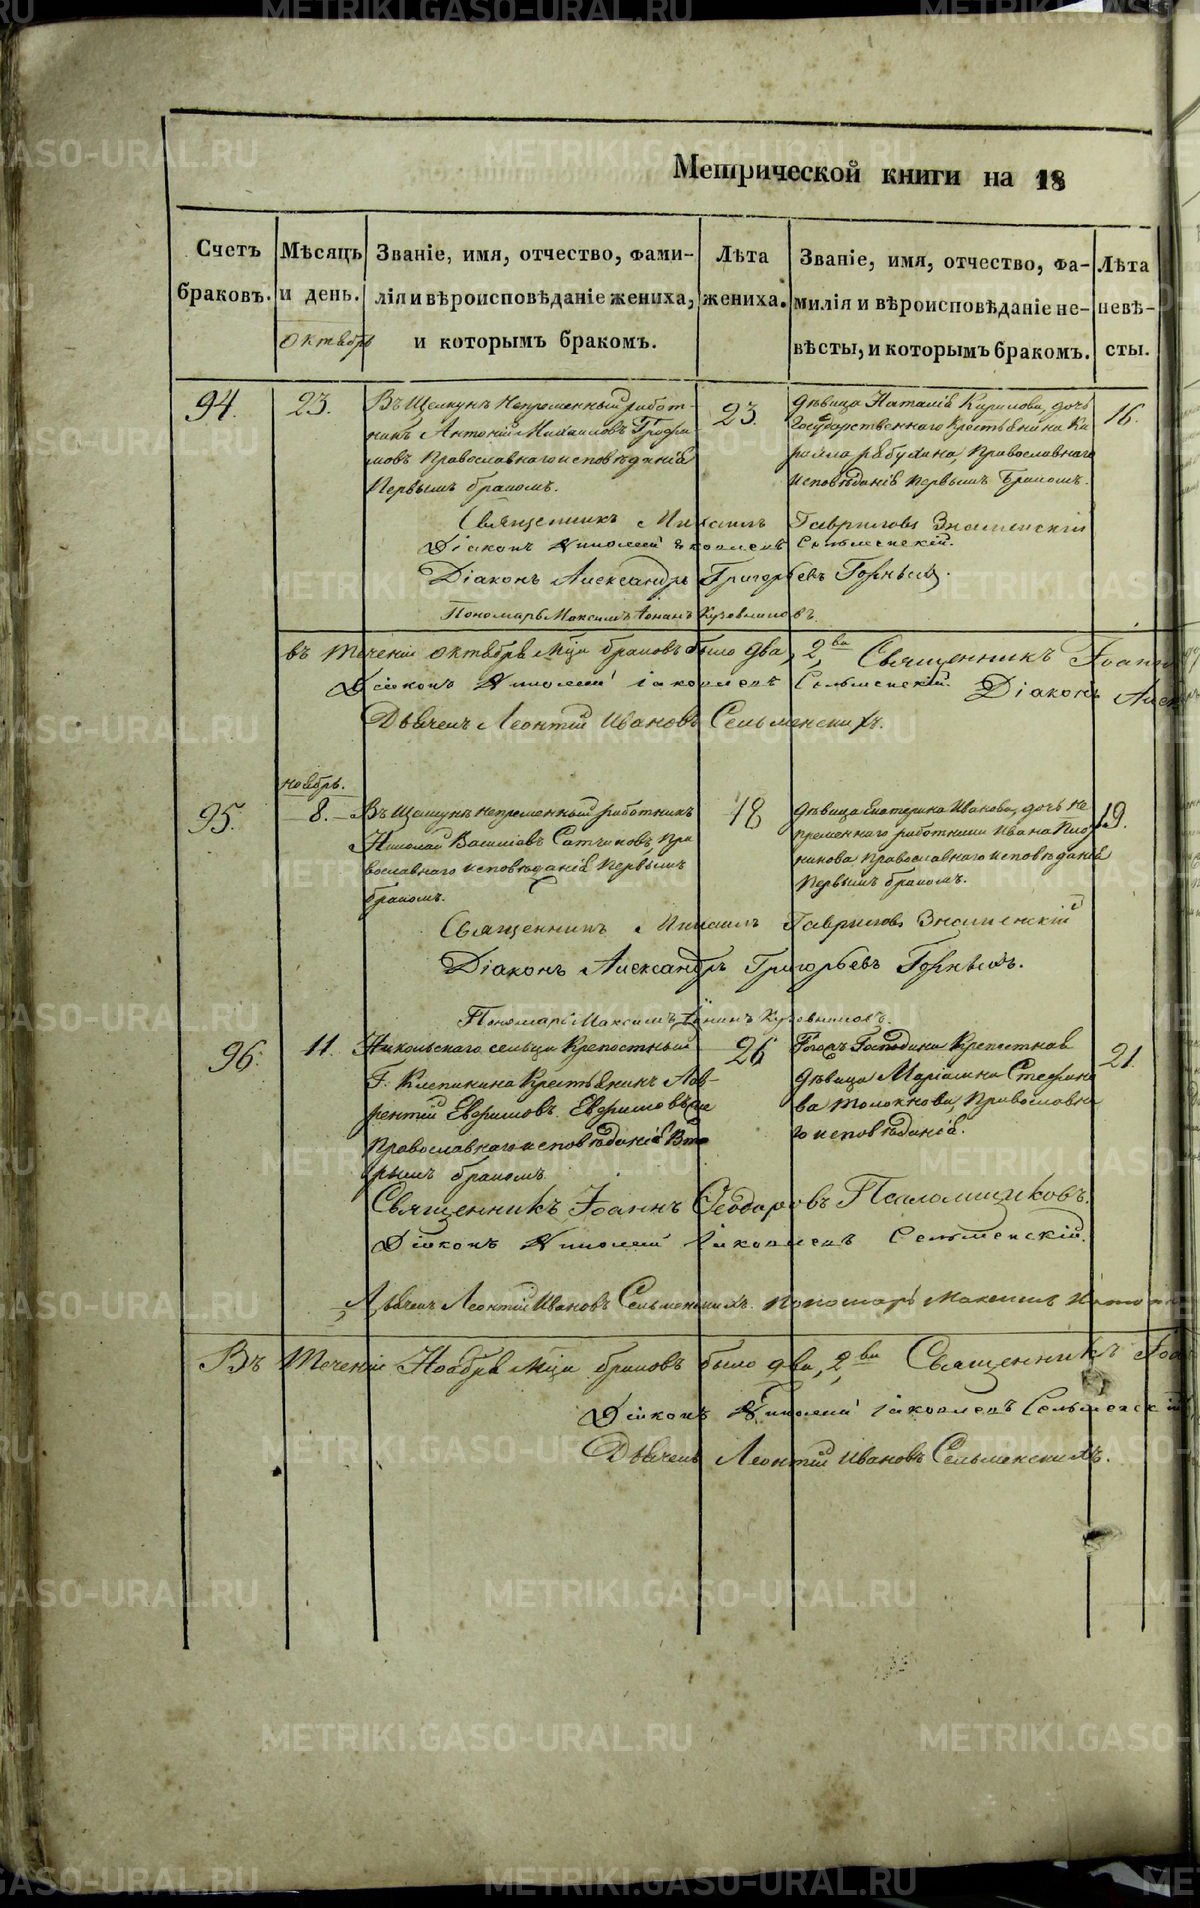 Метрической книги на 18
Счетъ браковъ.
Мѣсяцъ и день.
Званіе, имя, отчество, фами-
лія и вѣроисповѣданіе жениха,
и которымъ бракомъ.
Лѣта жениха.
Званіе, имя, отчество, фа-
милія и вѣроисповѣданіе не-
вѣсты, и которымъ бракомъ.
Лѣта невѣ-
сты.
Октябрь
94.
23.
Въ Щелкунѣ Непременный работ-
никъ Антоній Михаиловъ
Православнаго исповѣданія
Первымъ бракомъ.
23.
Дѣвица Наталія Кирилова, дочь
Государственнаго Крестьянина Ки
рилла Рябухина, Православнаго
исповѣданія Первымъ Бракомъ.
16.
Священникъ Михаилъ Гавриловъ Знаменскій
Діаконъ Николай Іаковлевъ Сельменскій.
Діаконъ Александръ Григорьевъ Горныхъ.
Пономарь Максимъ Іонинъ
въ Теченіи октября М̃ца браковъ было два, 2, ва Священникъ Іоанн
Діаконъ Николай Іаковлевъ Сельменскій. Діаконъ Алек
Дьячекъ Леонтій Ивановъ Сельменскихъ.
ноябрь.
95.
8.
Въ Щелкунѣ непременный работникъ
Николай Василіевъ Сатчиковъ, Пра
вославнаго исповѣданія Первымъ
бракомъ.
18
Дѣвица Екатерина Иванова, дочь не
пременнаго работника Ивана
никова Православнаго исповѣданія
Первымъ бракомъ.
19.
Священникъ Михаилъ Гавриловъ Знаменскій
Діаконъ Александръ Григорьевъ Горныхъ.
Пономарь Максимъ Іонинъ
96.
11.
Никольскаго сельца Крепостный
Г. Клепинина Крестьянинъ Лав-
рентій Ефимовъ
Православнаго исповѣданія Вто
рымъ бракомъ
26
Тогожъ Господина Крепостная
Дѣвица Маріамна Стефано
ва Толокнова, Православна
го исповѣданія.
21.
Священникъ Іоаннъ Ѳеодоровъ Паломщиковъ.
Діаконъ Николай Іаковлевъ Сельменскій.
Дьячекъ Леонтій Ивановъ Сельменскихъ. Пономарь Максимъ
Въ Теченіи Ноября М̃ца браковъ было два, 2, ва Священникъ Іоа
Діаконъ Николай Іаковлевъ Сельменскій
Дьячекъ Леонтій Ивановъ Сельменскихъ.
METRIKI.GASO-URAL.RU